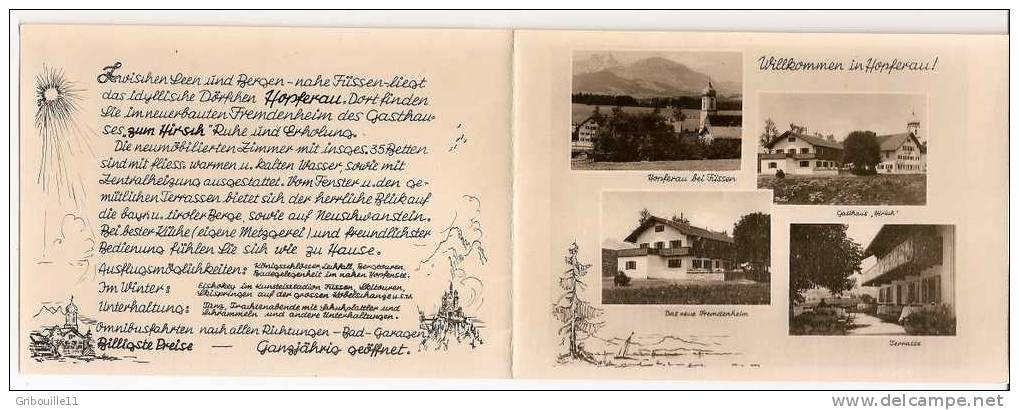 Zwischen Seen und Bergen - nahe Füssen - liegt
das idyllische Dörfchen Hopferau. Dort finden
Sie im neuerbauten Fremdenheim des Gasthau-
ses „zum Hirsch" Ruhe und Erholung.
Die neumöbilierten Zimmer mit insges. 35 Betten
sind mit fliess. warmen u. kalten Wasser, sowie mit
Zentralheizung ausgestattet. Vom Fenster u. den ge-
mütlichen Terrassen bietet sich der herrliche Blick auf
die bayr. u. tiroler Berge, sowie auf Neuschwanstein.
Bei bester Küche (eigene Metzgerei) und freundlichster
Bedienung fühlen Sie sich wie zu Hause.
Ausflugsmöglichkeiten: Königsschlösser, Lechfall, Bergtouren,
Badegelegenheit im nahen Hopfensee.
Im Winter: Eishokey im Kunsteisstadion Füssen, Skitouren,
Skispringen auf der grossen Kobelschanze u.s.w.
Unterhaltung: Tanz, Trachtenabende mit Schuhplattler und
Schrammeln und andere Unterhaltungen.
Omnibusfahrten nach allen Richtungen - Bad - Garagen
Billigste Preise — Ganzjährig geöffnet.
Willkommen in Hopferau!
Hopferau bei Füssen
Gasthaus „Hirsch"
Das neue Fremdenheim
Terrasse
Gribouille11
http://www.delcampe.net